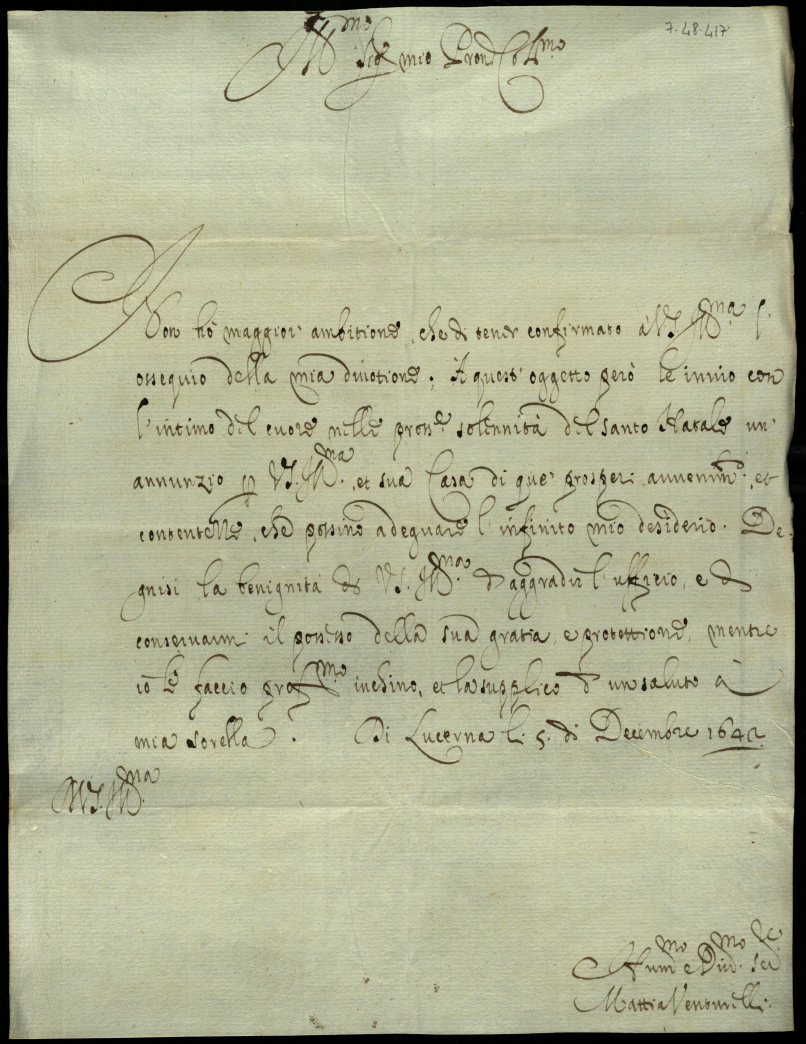 7-48-417
Ill.mo Sig.r mio Pron Col.mo
Non hò maggior ambitione, che di tener confirmato à VS. Ill.ma l'
ossequio della mia divotione; A quest' oggetto però le invio con
l'intimo del cuore nelle pross.e solennità del santo Natale un'
annunzio p VS. Ill.ma, et sua Casa di que' prosperi avvenim.ti, et
contentezze, che possino adeguare l'infinito mio desiderio. De-
gnisi la benignità di VS. Ill.ma d'aggradir l'uffizio, e di
conservarmi il possesso della sua gratia, e protettione, mentre
io le faccio prof.mo inchino, et la supplico d'un saluto à
mia sorella. Di Lucerna li 5. di Decembre 1642
VS. Ill.ma
Hum.mo e Div.mo Ser.re
Mattia Venturelli.